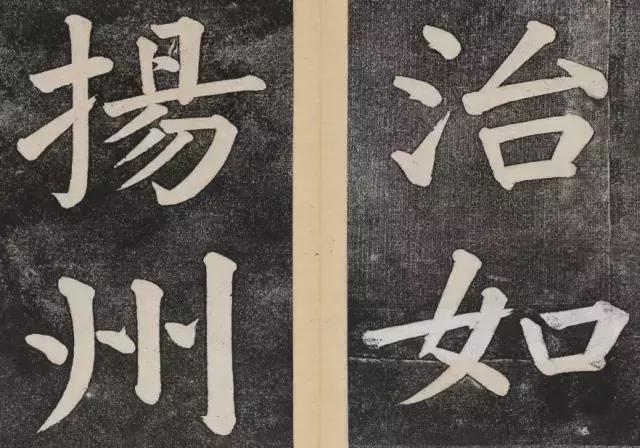 治如
揚州